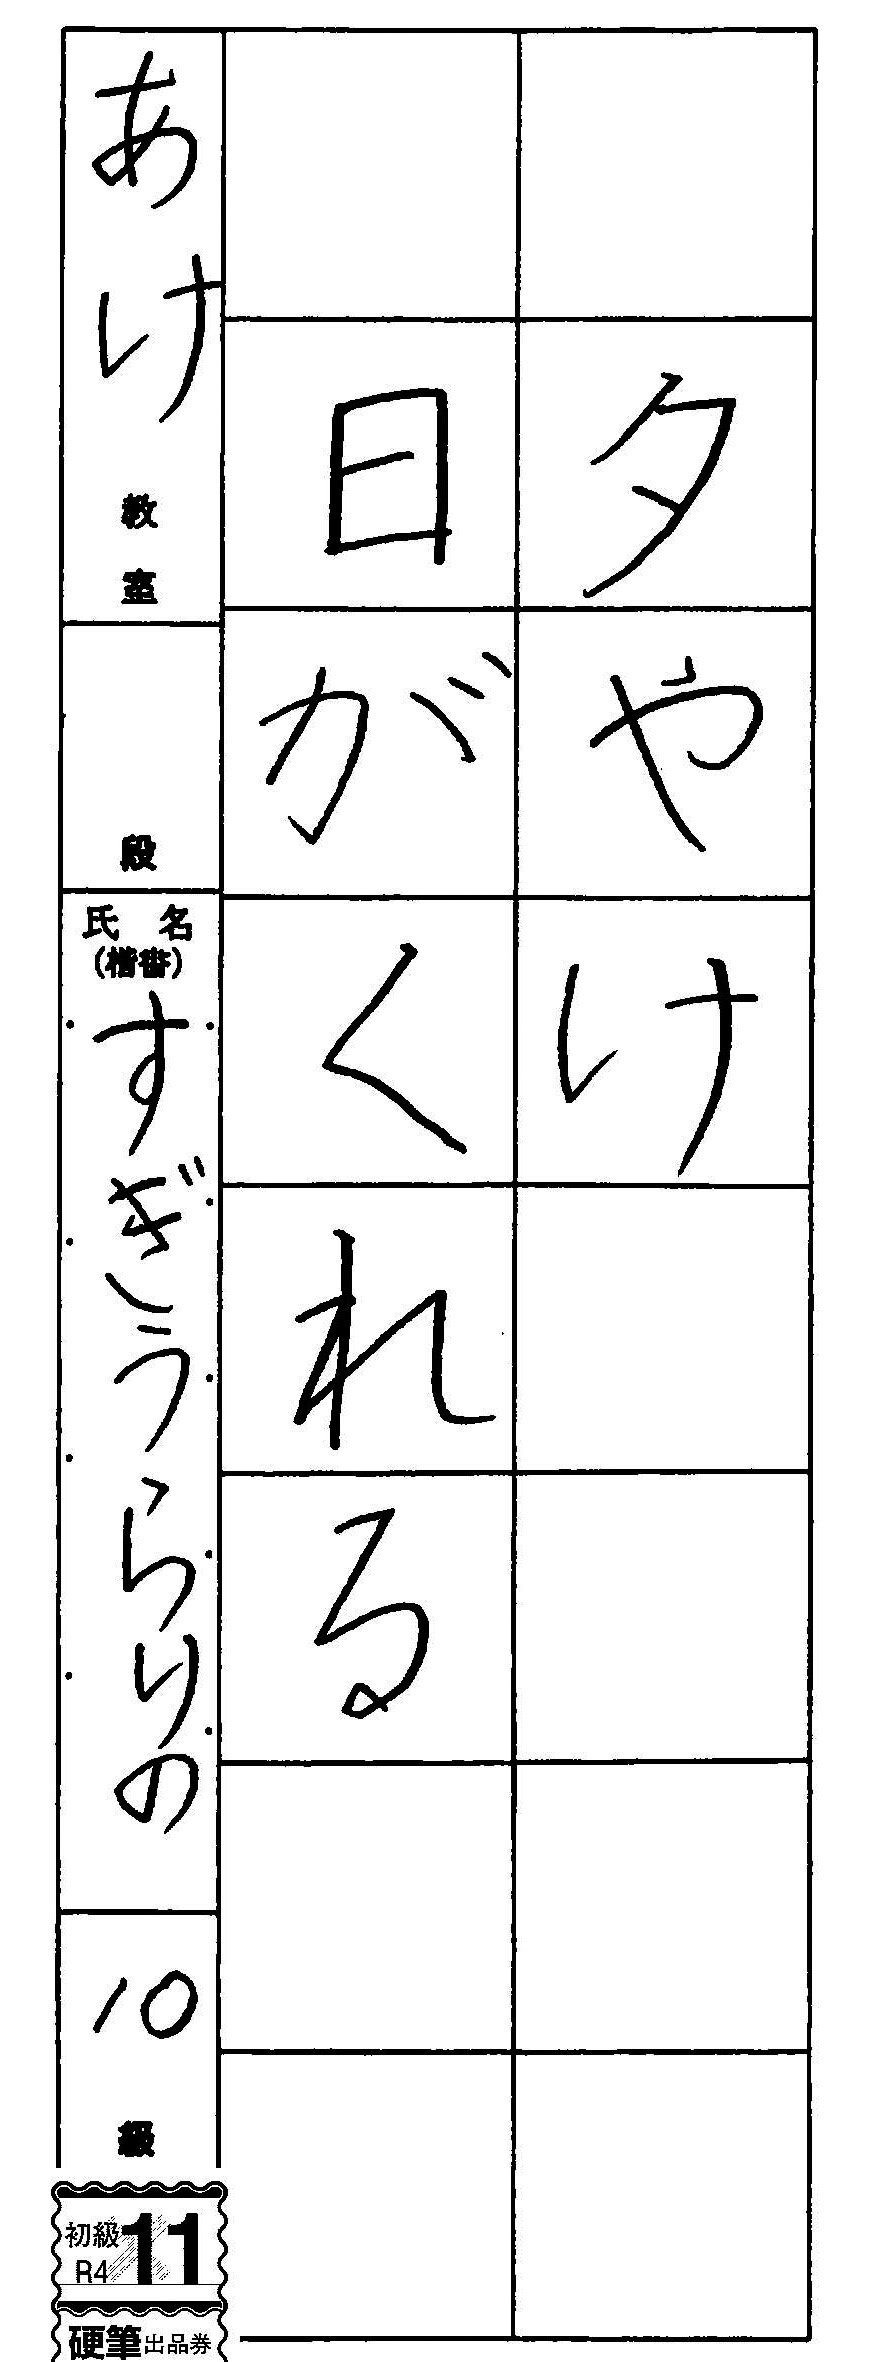 夕やけ
日がくれる
あけ教室
段
氏名
(楷書)
すぎうらりの
10級
初級
R4
11
硬筆出品券